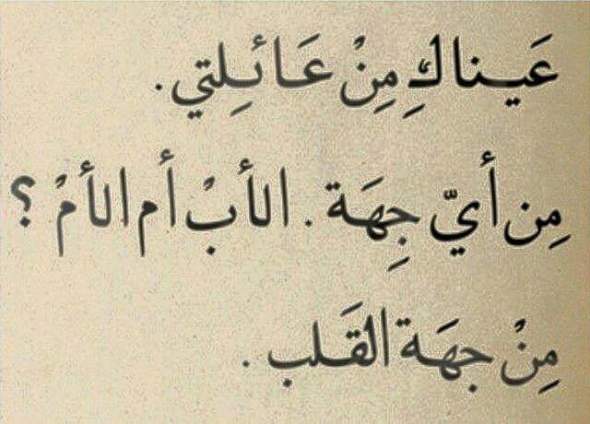 عَيناكِ مِنْ عَائِلتي.
مِن أيّ جِهَة. الأبْ أم الأمْ ؟
مِنْ جِهَة القَلب.